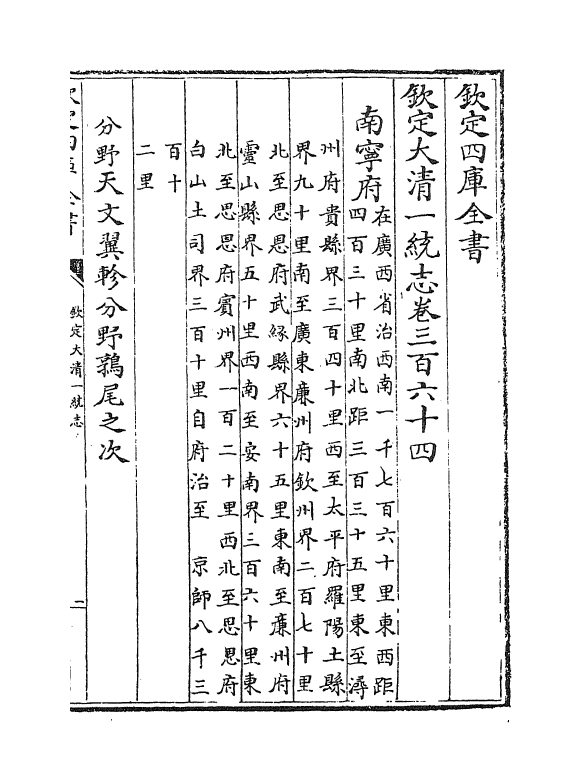 欽定四庫全書
欽定大清一統志卷三百六十四
南寧府
在廣西省治西南一千七百六十里東西距
四百三十里南北距三百三十五里東至潯
州府貴縣界三百四十里西至太平府羅陽土縣
界九十里南至廣東廉州府欽州界二百七十里
北至思恩府武緣縣界六十五里東南至廉州府
靈山縣界五十里西南至安南界三百六十里東
北至思恩府賓州界一百二十里西北至思恩府
白山土司界三百十里自府治至 京師八千三
百十
二里
分野天文翼軫分野鶉尾之次
欽定四庫全書
欽定大清一統志